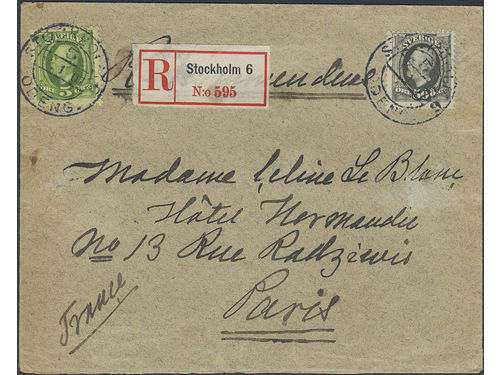 SVERIGE
5
ÖRE
R
Stockholm 6
N:o 595
SVERIGE
ÖRE
Madame Céline Le Blanc
Hôtel Normandie
No 13 Rue Radziwis
Paris
France